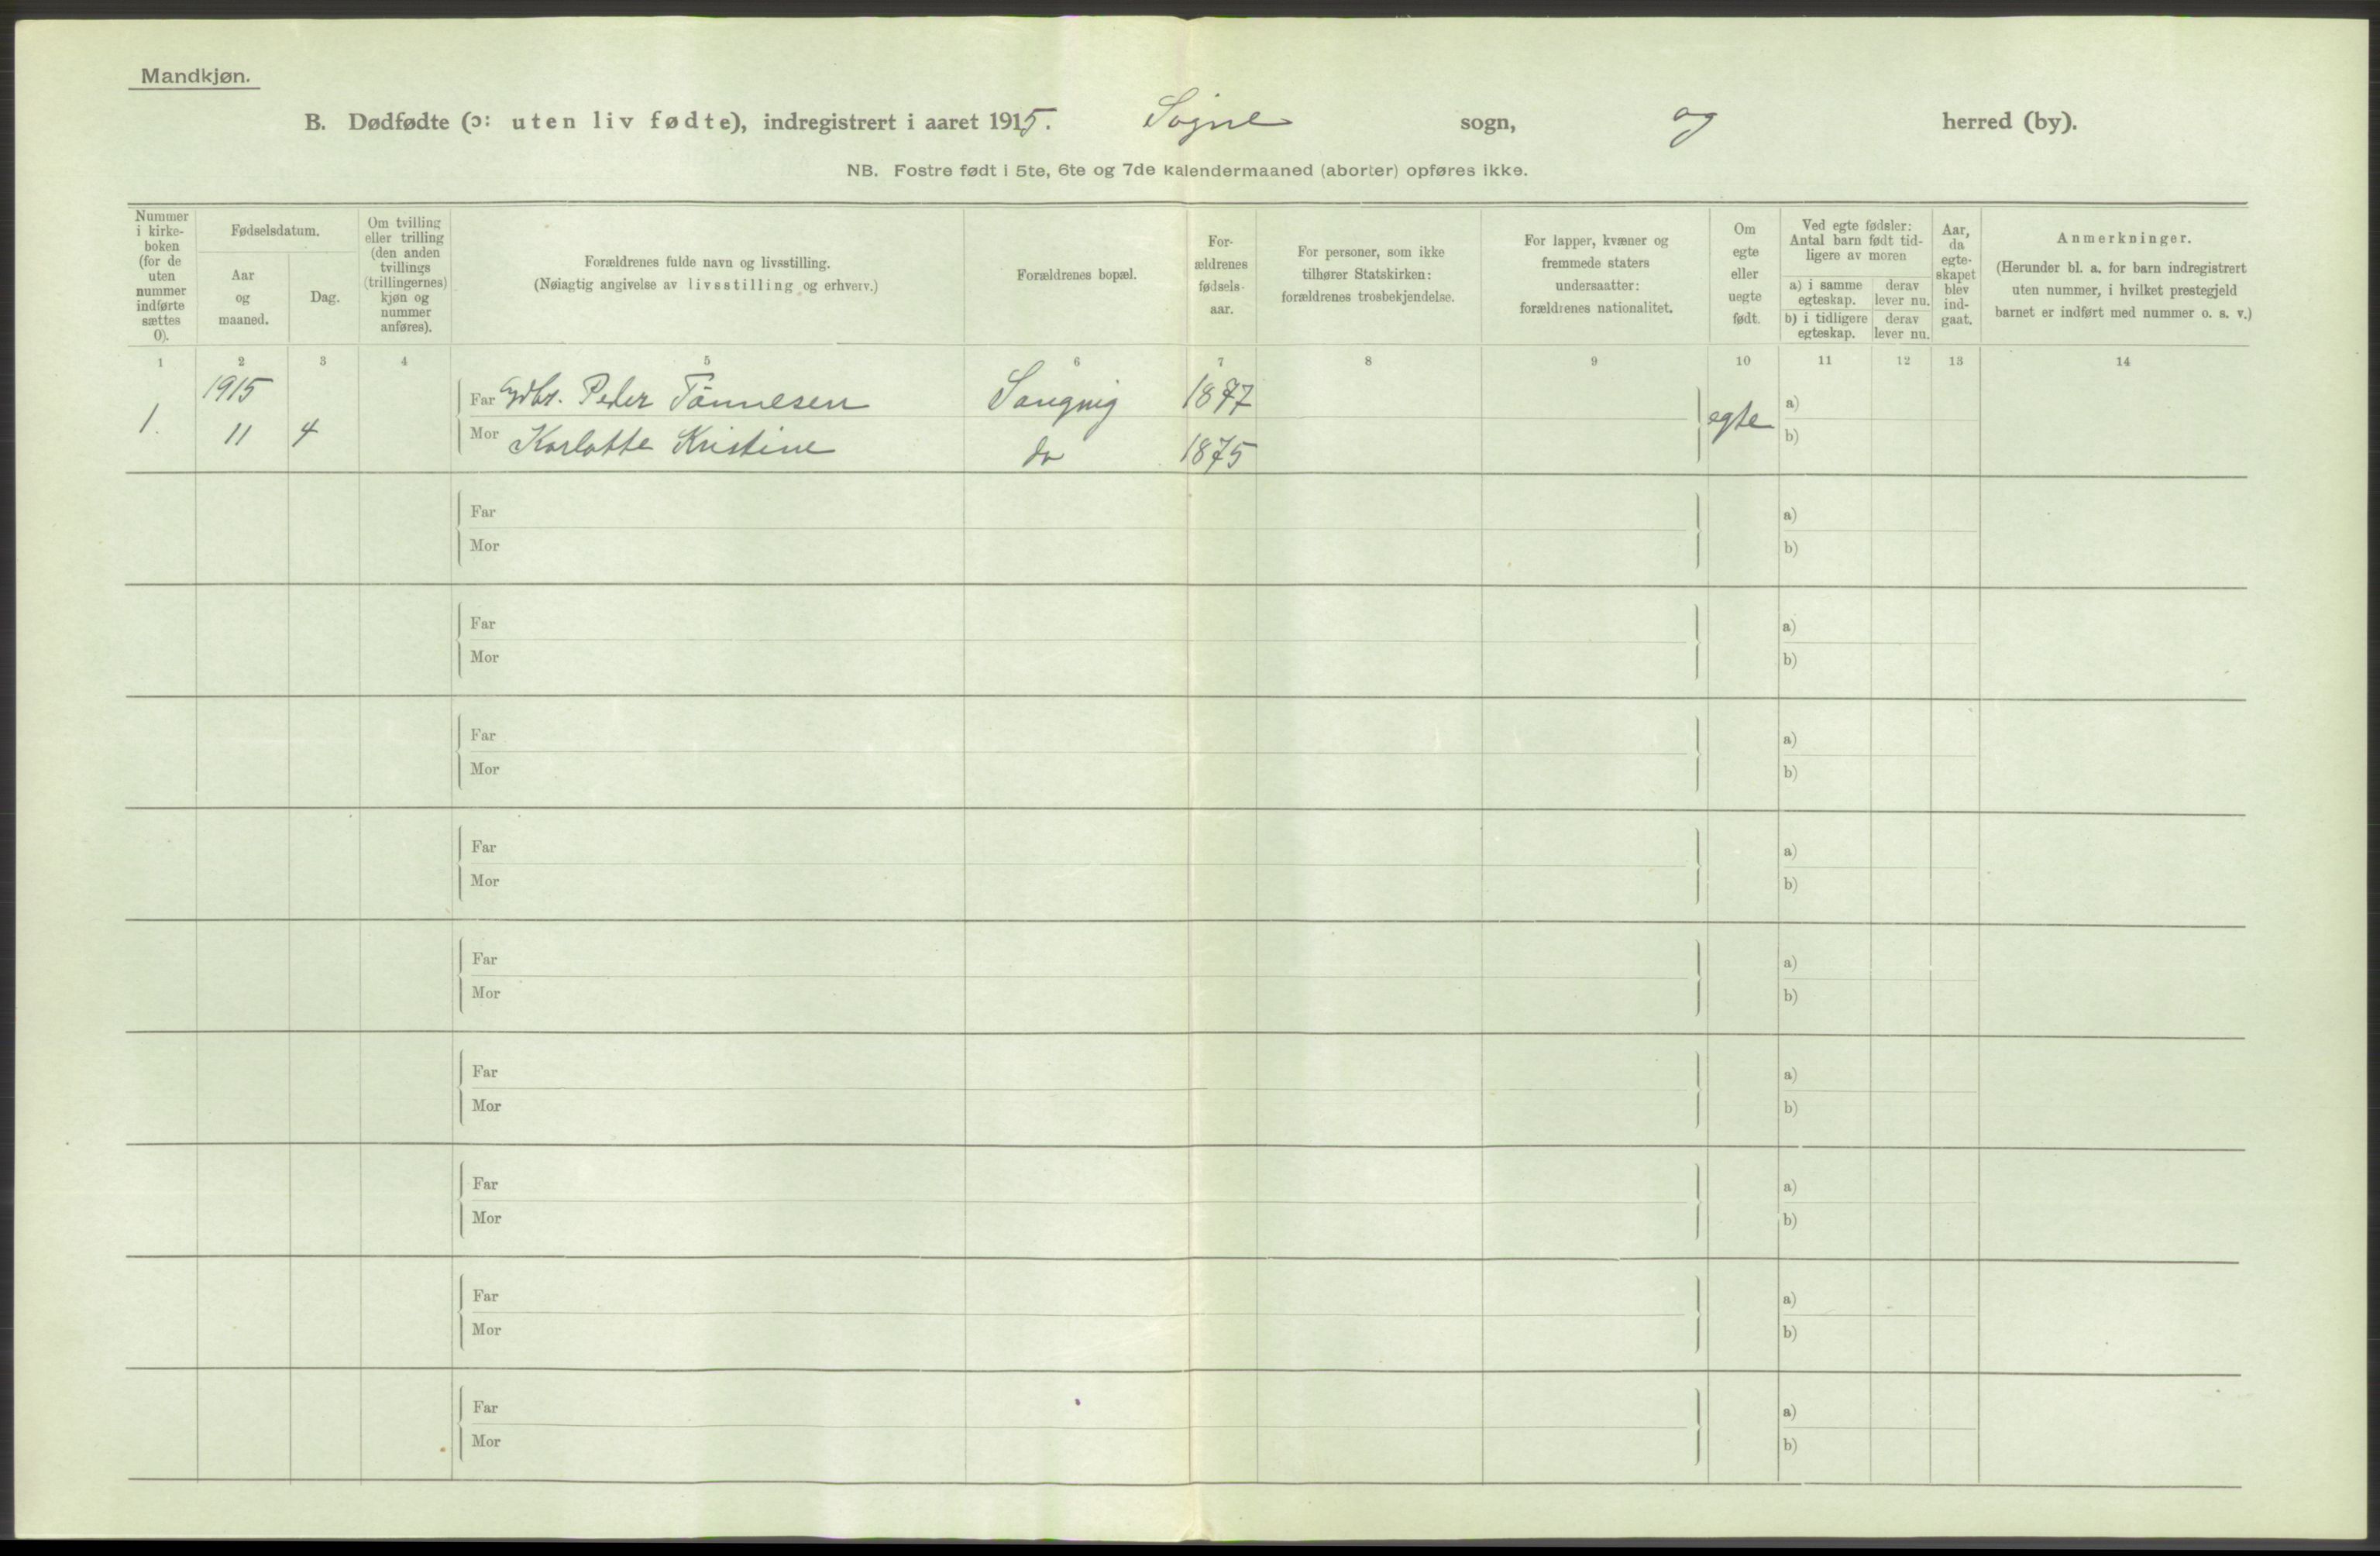 Mandkjøn.
B. Dødfødte (ɔ: uten liv fødte), indregistrert i aaret 1915. Søgne sogn, og herred (by).
NB. Fostre født i 5te, 6te og 7de kalendermaaned (aborter) opføres ikke.
Nummer i kirke- boken (for de uten nummer indførte sættes 0).
Fødselsdatum.
Aar og maaned.
Dag.
Om tvilling eller trilling (den anden tvillings (trillingernes) kjøn og nummer anføres).
Forældrenes fulde navn og livsstilling.
(Nøiagtig angivelse av livsstilling og erhverv.)
Forældrenes bopæl.
For- ældrenes fødsels- aar.
For personer, som ikke tilhører Statskirken: forældrenes trosbekjendelse.
For lapper, kvæner og fremmede staters undersaatter: forældrenes nationalitet.
Om egte eller uegte født.
Ved egte fødsler: Antal barn født tid- ligere av moren
a) i samme egteskap.
derav lever nu.
b) i tidligere egteskap.
derav lever nu.
Aar, da egte- skapet blev ind- gaat.
Anmerkninger.
(Herunder bl. a. for barn indregistrert uten nummer, i hvilket prestegjeld barnet er indført med nummer o. s. v.)
1 2 3 4 5 6 7 8 9 10 11 12 13 14
1. 1915 11 4
Far Gdbr. Peder Tönnesen Sangvig 1877 egte a)
Mor Karlotte Kristine do 1875 b)
Far a)
Mor b)
Far a)
Mor b)
Far a)
Mor b)
Far a)
Mor b)
Far a)
Mor b)
Far a)
Mor b)
Far a)
Mor b)
Far a)
Mor b)
Far a)
Mor b)